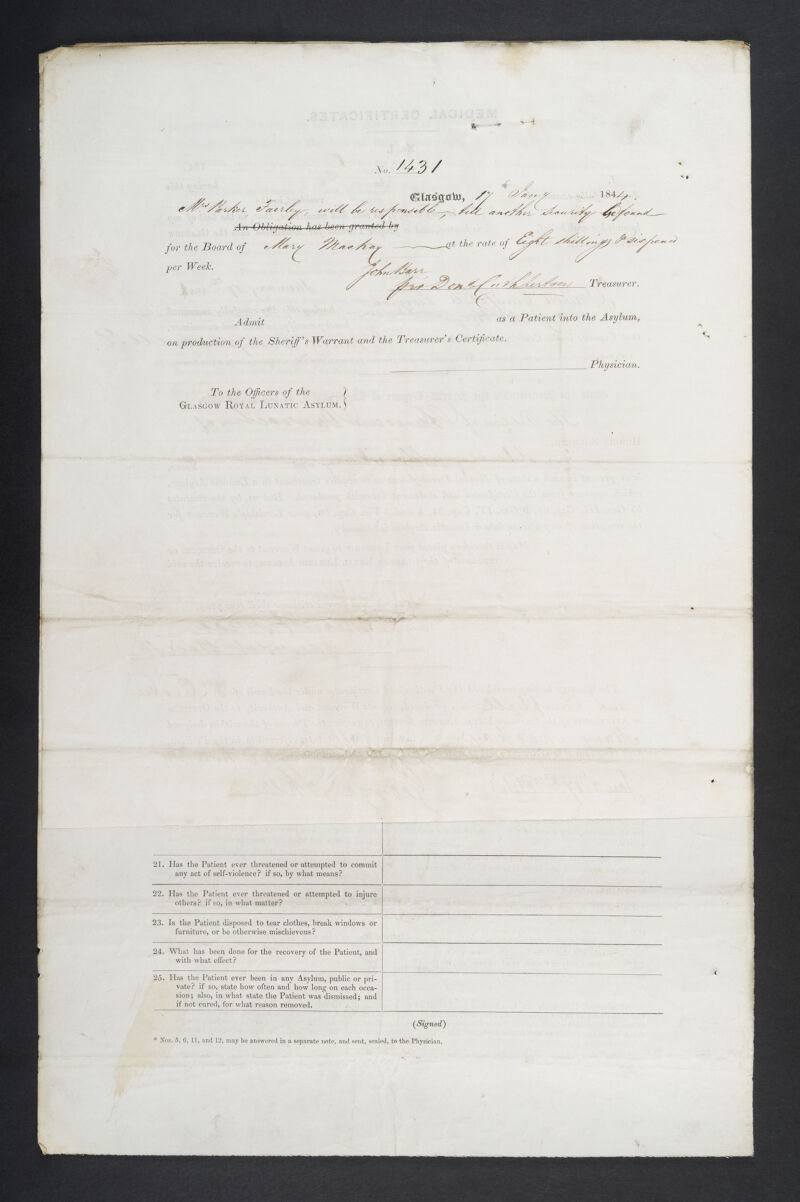 No. 1431
Glasgow, 17th Jany 1844.
Mrs Parker Fairley, will be responsible, till another security is found
An Obligation has been granted by
for the Board of Mary Mackay at the rate of Eight shillings & sixpence
per Week.
John Barr
pro Cuthbertson Treasurer.
Admit as a Patient into the Asylum,
on production of the Sheriff's Warrant and the Treasurer's Certificate.
Physician.
To the Officers of the
Glasgow Royal Lunatic Asylum.
21. Has the Patient ever threatened or attempted to commit
any act of self-violence? if so, by what means?
22. Has the Patient ever threatened or attempted to injure
others? if so, in what matter?
23. Is the Patient disposed to tear clothes, break windows or
furniture, or be otherwise mischievous?
24. What has been done for the recovery of the Patient, and
with what effect?
25. Has the Patient ever been in any Asylum, public or pri-
vate? if so, state how often and how long on each occa-
sion; also, in what state the Patient was dismissed; and
if not cured, for what reason removed.
(Signed)
* Nos. 5, 6, 11, and 12, may be answered in a separate note, and sent, sealed, to the Physician.